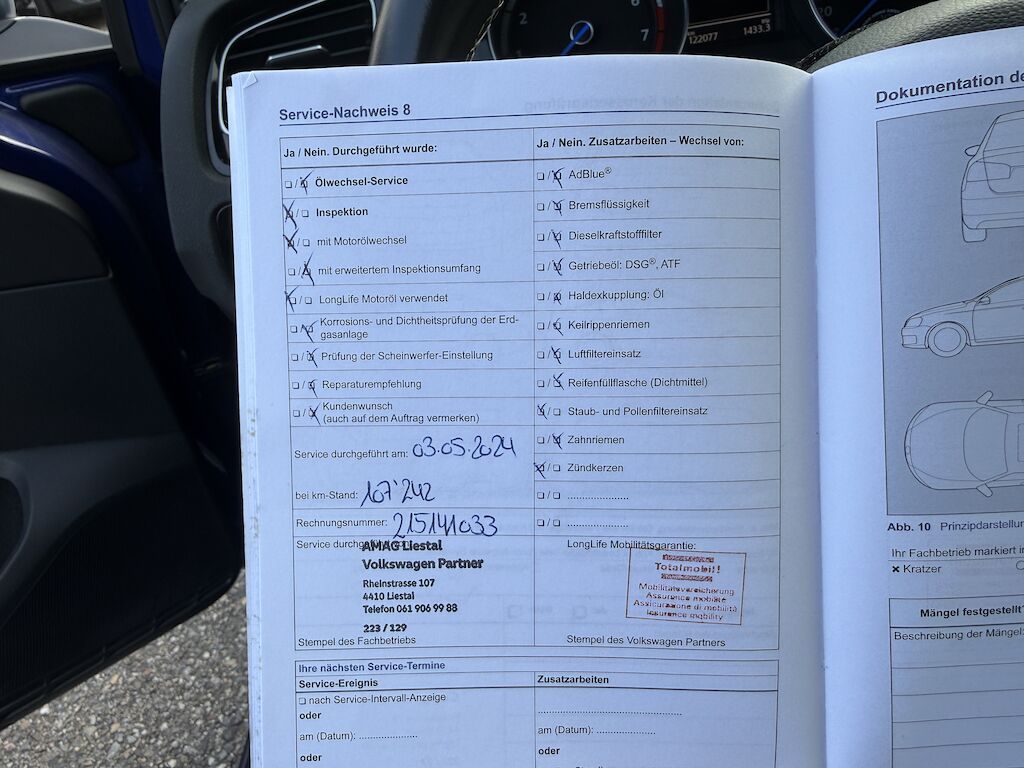 2
6
7
122077
1433.3
20
Service-Nachweis 8
Ja / Nein. Durchgeführt wurde:
☐ / ☒ Ölwechsel-Service
☒ / ☐ Inspektion
☒ / ☐ mit Motorölwechsel
☐ / ☒ mit erweitertem Inspektionsumfang
☒ / ☐ LongLife Motoröl verwendet
☐ / ☒ Korrosions- und Dichtheitsprüfung der Erd-
gasanlage
☐ / ☒ Prüfung der Scheinwerfer-Einstellung
☐ / ☒ Reparaturempfehlung
☐ / ☒ Kundenwunsch
(auch auf dem Auftrag vermerken)
Service durchgeführt am: 03.05.2024
bei km-Stand: 107'242
Rechnungsnummer: 215141033
Service durchgeführt
AMAG Liestal
Volkswagen Partner
Rheinstrasse 107
4410 Liestal
Telefon 061 906 99 88
223 / 129
Stempel des Fachbetriebs
Ja / Nein. Zusatzarbeiten – Wechsel von:
☐ / ☒ AdBlue®
☐ / ☒ Bremsflüssigkeit
☐ / ☒ Dieselkraftstofffilter
☐ / ☒ Getriebeöl: DSG®, ATF
☐ / ☒ Haldexkupplung: Öl
☐ / ☒ Keilrippenriemen
☐ / ☒ Luftfiltereinsatz
☐ / ☒ Reifenfüllflasche (Dichtmittel)
☒ / ☐ Staub- und Pollenfiltereinsatz
☐ / ☒ Zahnriemen
☒ / ☐ Zündkerzen
☐ / ☐ .....................
☐ / ☐ .....................
LongLife Mobilitätsgarantie:
Totalmobil!
Mobilitätsversicherung
Assurance mobilité
Assicurazione di mobilità
Insurance mobility
Stempel des Volkswagen Partners
Ihre nächsten Service-Termine
Service-Ereignis
☐ nach Service-Intervall-Anzeige
oder
am (Datum): ....................
oder
Zusatzarbeiten
..................................................
am (Datum): ....................
oder
Dokumentation de
Abb. 10 Prinzipdarstellun
Ihr Fachbetrieb markiert in
× Kratzer
Mängel festgestellt
Beschreibung der Mängel